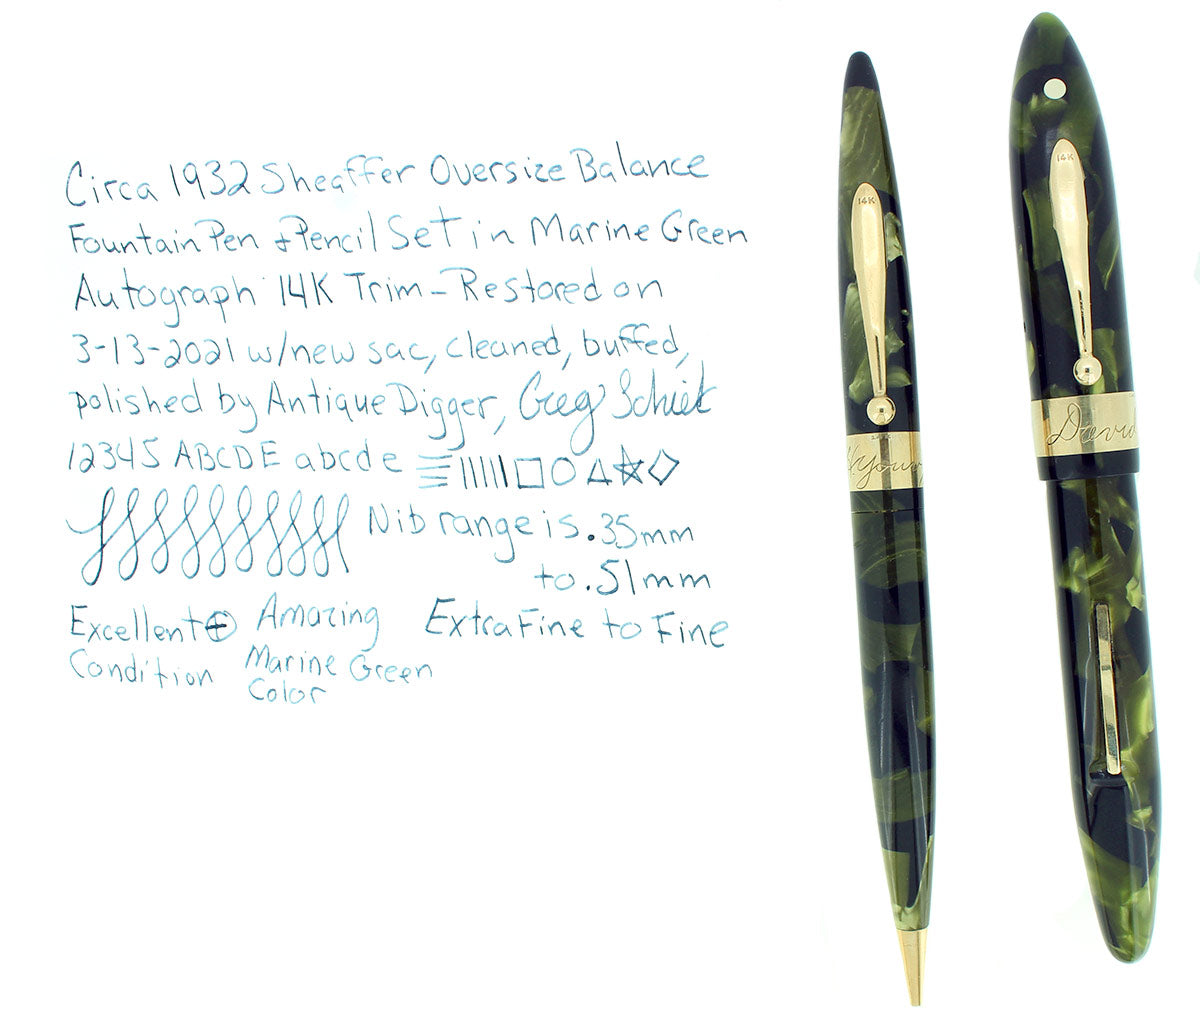 Circa 1932 Sheaffer Oversize Balance
Fountain Pen + Pencil Set in Marine Green
Autograph 14K Trim - Restored on
3-13-2021 w/new sac, cleaned, buffed,
polished by Antique Digger, Greg
12345 ABCDE abcde
Nib range is .35mm
to .51mm
Extra Fine to Fine
Excellent +
Condition
Amazing
Marine Green
Color
14K
14K
David